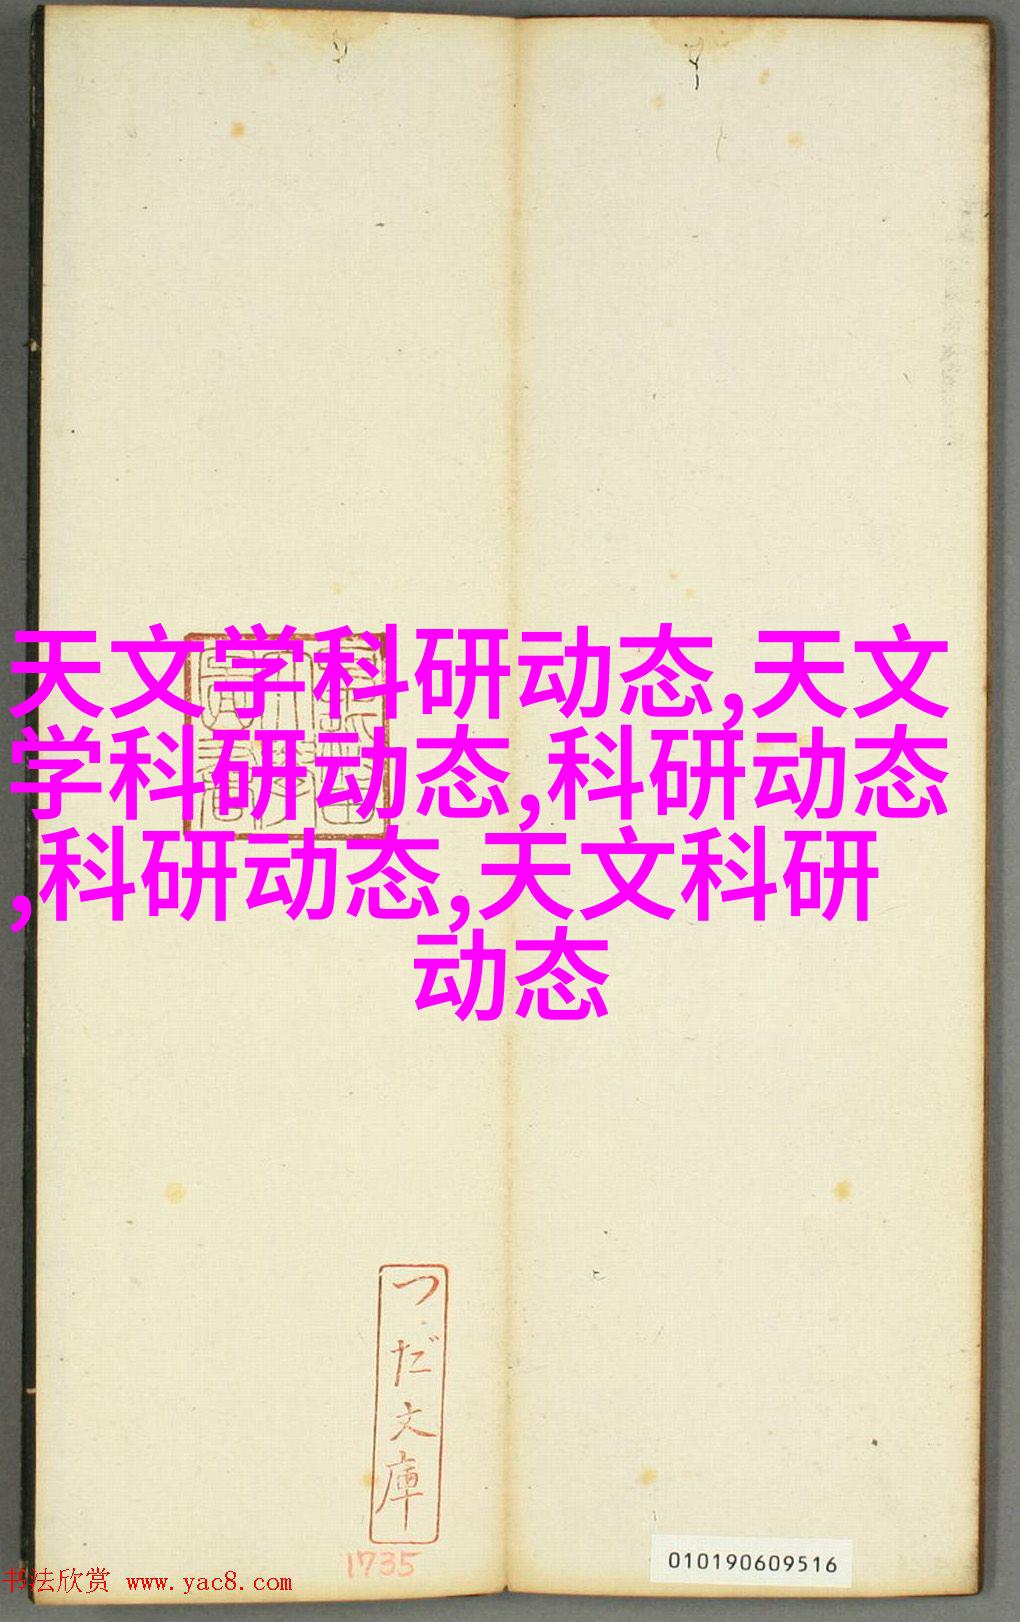 天文学科研动态,天文
学科研动态,科研动态
,科研动态,天文科研
动态
つだ文庫
1735
010190609516
书法欣赏 www.yac8.com